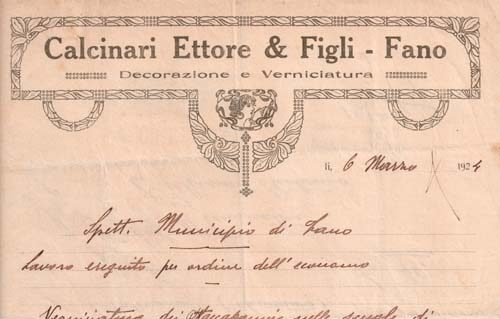 Calcinari Ettore & Figli - Fano
Decorazione e Verniciatura
li, 6 Marzo 1924
Spett. Municipio di Fano
Lavoro eseguito per ordine dell'economo
Verniciatura dei nelle scuole di